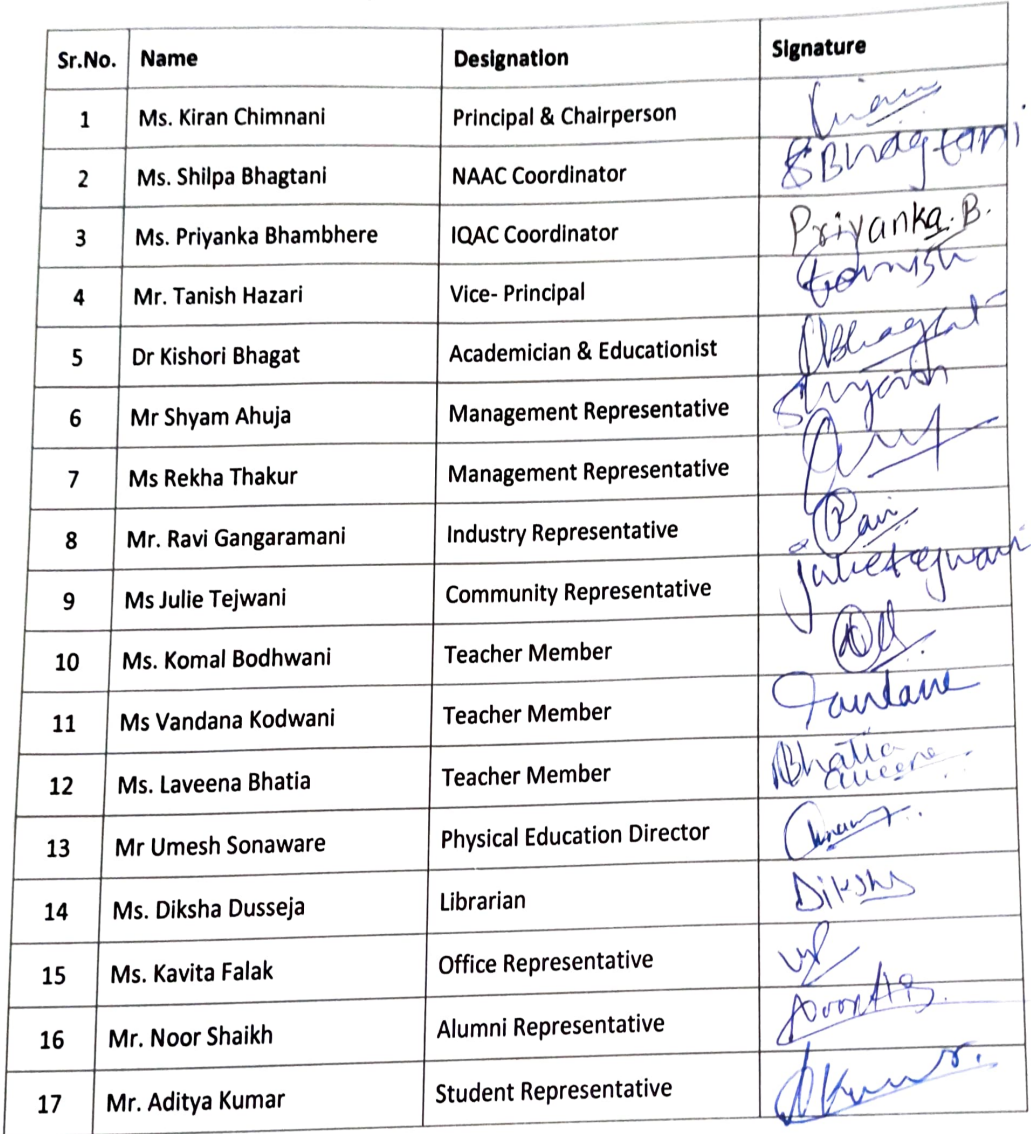 Sr.No. Name Designation Signature
1 Ms. Kiran Chimnani Principal & Chairperson Kiran
2 Ms. Shilpa Bhagtani NAAC Coordinator SBhagtani
3 Ms. Priyanka Bhambhere IQAC Coordinator Priyanka.B.
4 Mr. Tanish Hazari Vice- Principal Tanish
5 Dr Kishori Bhagat Academician & Educationist KBhagat
6 Mr Shyam Ahuja Management Representative Shyam
7 Ms Rekha Thakur Management Representative
8 Mr. Ravi Gangaramani Industry Representative Ravi
9 Ms Julie Tejwani Community Representative Julietejwani
10 Ms. Komal Bodhwani Teacher Member
11 Ms Vandana Kodwani Teacher Member
12 Ms. Laveena Bhatia Teacher Member Bhatia
13 Mr Umesh Sonaware Physical Education Director
14 Ms. Diksha Dusseja Librarian Diksha
15 Ms. Kavita Falak Office Representative
16 Mr. Noor Shaikh Alumni Representative
17 Mr. Aditya Kumar Student Representative AKumar.